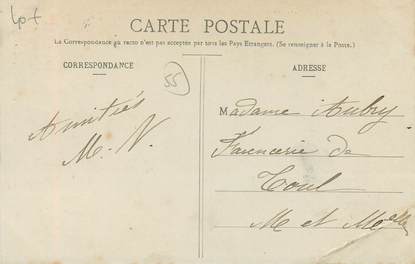 Lot
CARTE POSTALE
La Correspondance au recto n'est pas acceptée par tous les Pays Etrangers. (Se renseigner à la Poste.)
CORRESPONDANCE
ADRESSE
55
Amitiés
M. V.
Madame Aubry
Faiencerie de
Toul
M et Melle